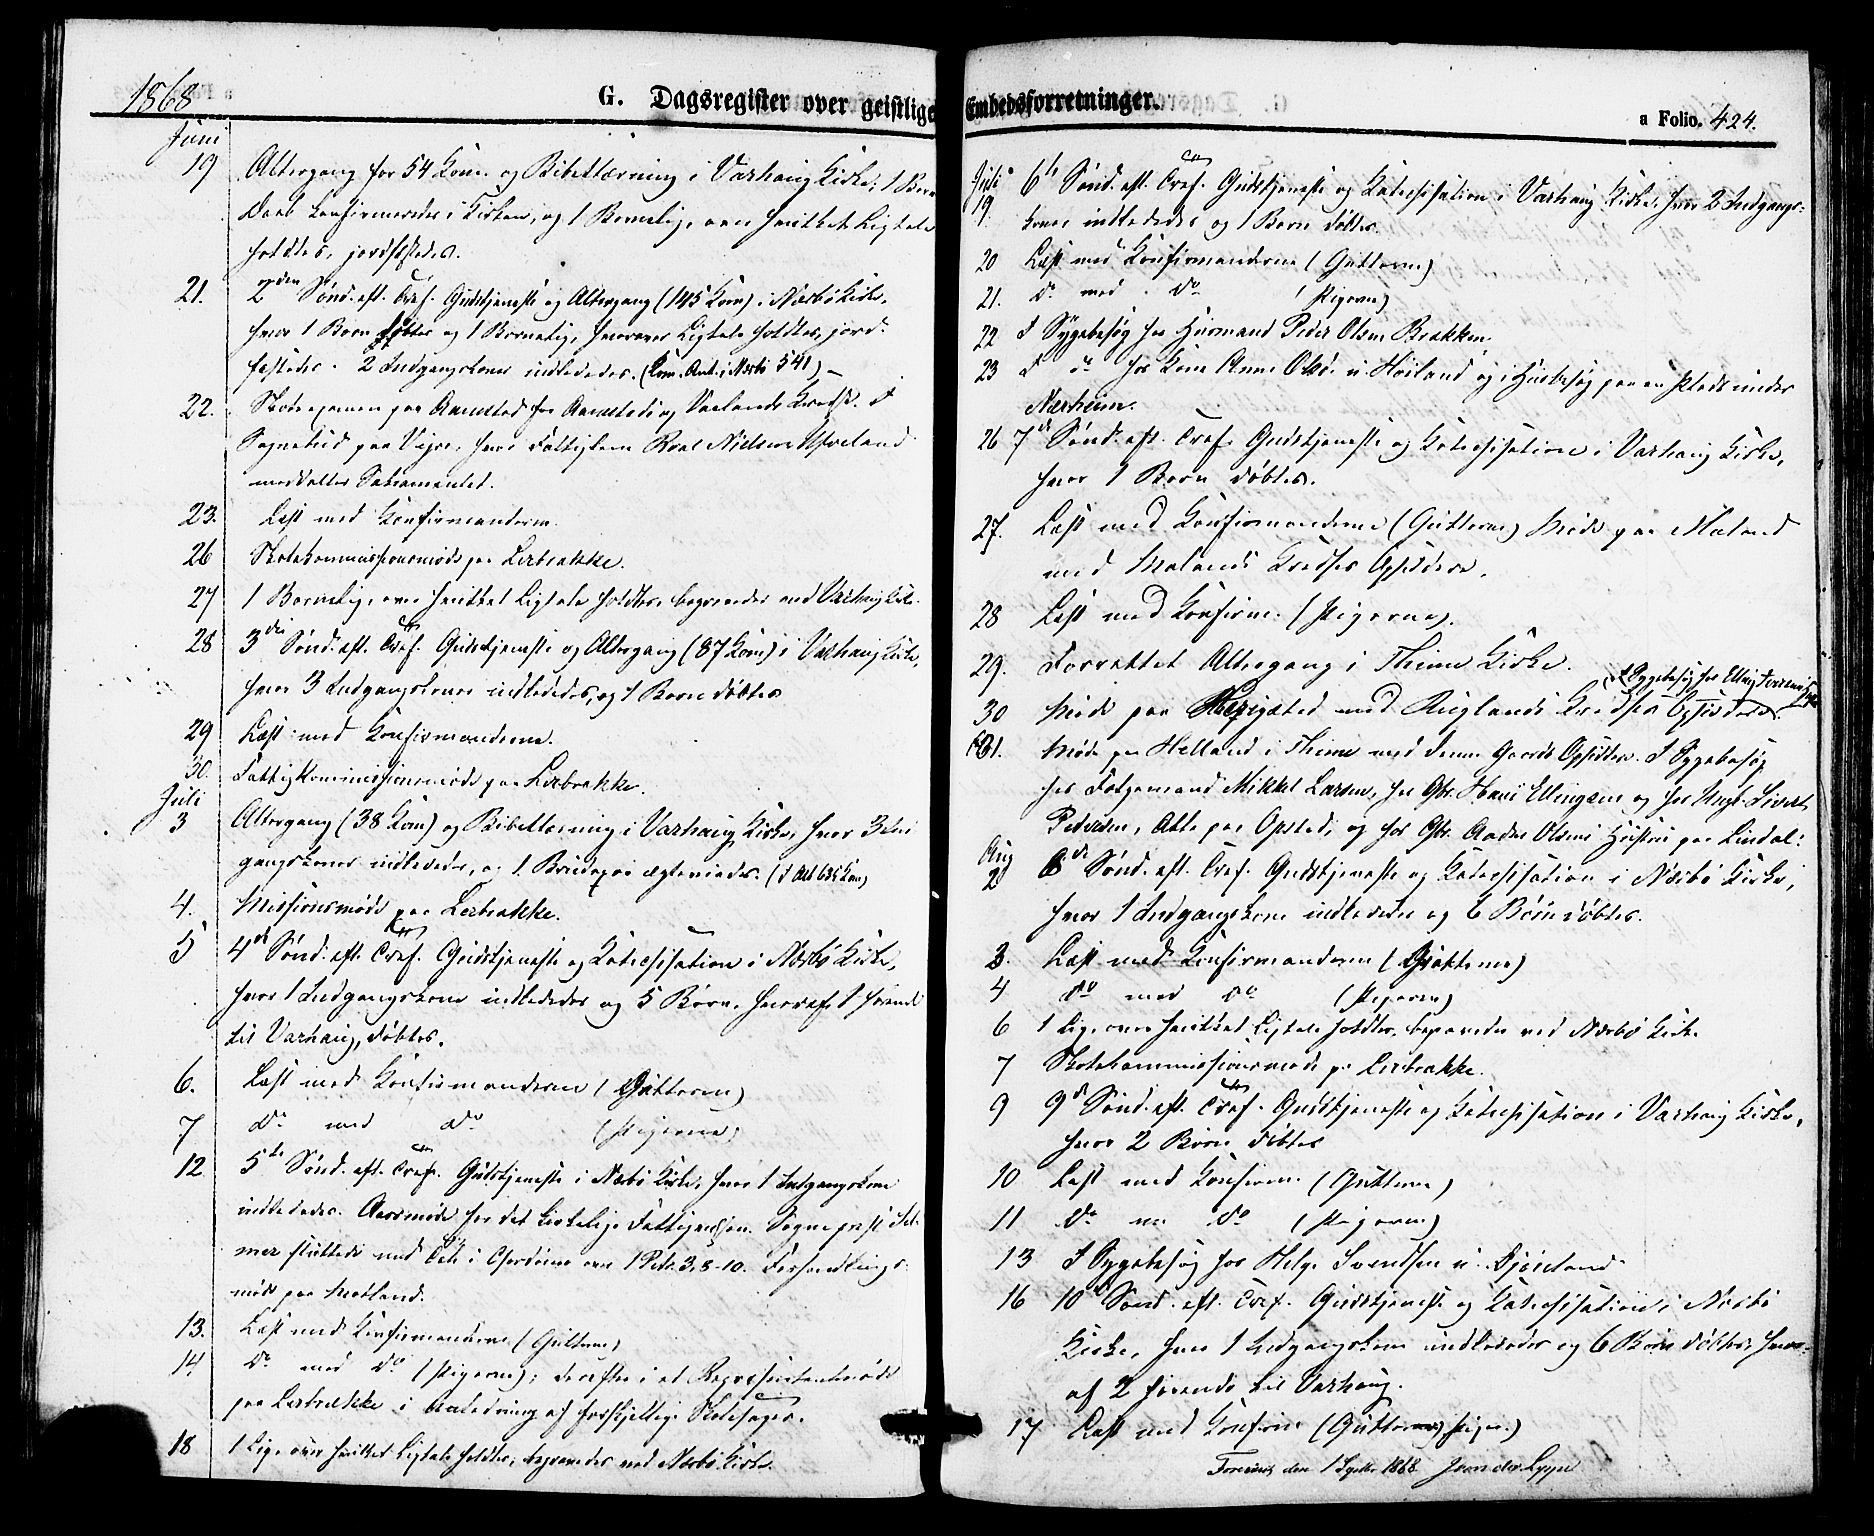 1868
G. Dagsregister over geistlige
Juni
19 Altergang for 54 Kom. og Bibellæsning i Varhaug Kirke, 1 Barns
Daab konfirmeredes i Kirken, og 1 Barnelig, over hvilket Ligtale
holdtes, jordfæstedes.
21. 2den Sønd. eft. Tref. Gudstjeneste og Altergang (145 Kom) i Nærbø Kirke,
hvor 1 Barn døbtes og 1 Barnelig, hvorover Ligtale holdtes, jord-
fæstedes. 2 Indgangskoner indlededes. (Kom. Ant. i Nærbø 541)
22. Skoleexamen paa Aarestad for Aarestads og Vaalands Kreds. I
Sognebud paa Vigre, hvor Fattiglem Roal Nielsen
meddeltes Sakramentet.
23. Læst med Konfirmanderne
26 Skolekommissionsmøde paa Lerbrække.
27 1 Barnelig, over hvilket Ligtale holdtes, begravedes ved Varhaug Kirke.
28 3die Sønd. eft. Tref. Gudstjeneste og Altergang (87 Kom) i Varhaug Kirke,
hvor 3 Indgangskoner indlededes, og 1 Barn døbtes
29 Læst med Konfirmanderne.
30. Fattigkommissionsmøde paa Lerbrække.
Juli
3 Altergang (38 Kom) og Bibellæsning i Varhaug Kirke, hvor 3 Ind
gangskoner indlededes, og 1 Brudepar ægteviedes.
4. Missionsmøde paa Lerbrække.
5 4de Sønd. eft. Tref. Gudstjeneste og Katechisation i Nærbø Kirke,
hvor 1 Indgangskone indlededes og 5 Børn, hvoraf 1 hørende
til Varhaug, døbtes.
6. Læst med Konfirmanderne (Gutterne)
7 Do med Do (Pigerne)
12 5te Sønd. eft. Tref. Gudstjeneste i Nærbø Kirke, hvor 1 Indgangskone
indlededes. Aarsmøde for det kirkelige Fattigvæsen. Sogneprest
sluttede med Tale i Chordøren over 1 Petr. 3, 8-10. Forhandlings-
møde paa Motland.
13. Læst med Konfirmanderne (Gutterne)
14 Do med Do (Pigerne), derefter i et Repræsentantmøde
paa Lerbrække i Anledning af forskjellige Skolesager.
18 1 Lig, over hvilket Ligtale holdtes, begravedes ved Nærbø Kirke.
Embedsforretninger.
a Folio. 424.
Juli
19. 6te Sønd. eft. Tref. Gudstjeneste og Katechisation i Varhaug Kirke, hvor 2 Indgangs-
koner indlededes og 1 Barn døbtes.
20 Læst med Konfirmanderne (Gutterne)
21. Do med Do (Pigerne)
22 I Sygebesøg hos Husmand Peder Olsen Brækken.
23 I do hos Kone Anne Olsd. u. Høiland og i Husbesøg paa en Plads under
Nærheim.
26 7de Sønd. eft. Tref. Gudstjeneste og Katechisation i Varhaug Kirke,
hvor 1 Barn døbtes.
27. Læst med Konfirmanderne (Gutterne) Møde paa Maland
med Malands Kredses Opsiddere.
28 Læst med Konfirm. (Pigerne).
29. Forrettet Altergang i Thime Kirke.
30 Møde paa med Auglands Kredses Opsiddere. I Sygebesøg hos
31. Møde paa Helland i Thime med denne Gaards Opsiddere. I Sygebesøg
hos Følgemand Mikkel Larsen, hos Gbr. Ellingsen og hos Ungk. Sivert
Pedersen, Alle paa Opstad, og hos Gbr. Aadne Olsens Hustru paa Lindal.
Aug
2 8de Sønd. eft. Tref. Gudstjeneste og Katechisation i Nærbø Kirke,
hvor 1 Indgangskone indlededes og 6 Børn døbtes.
3. Læst med Konfirmanderne (Gutterne)
4 do med do (Pigerne)
6 1 Lig, over hvilket Ligtale holdtes, begravedes ved Nærbø Kirke.
7 Skolekommissionsmøde paa Lerbrække.
9 9de Sønd. eft. Tref. Gudstjeneste og Katechisation i Varhaug Kirke,
hvor 2 Børn døbtes
10 Læst med Konfirm. (Gutterne)
11 Do m Do (Pigerne)
13 I Sygebesøg hos Helge Svendsen u.
16 10de Sønd. eft. Tref. Gudstjeneste og Katechisation i Nærbø
Kirke, hvor 1 Indgangskone indlededes og 6 Børn døbtes, hvor-
af 2 hørende til Varhaug.
17 Læst med Konfirm (Gutterne, Piger.)
Foreviist den 1 Septbr 1868